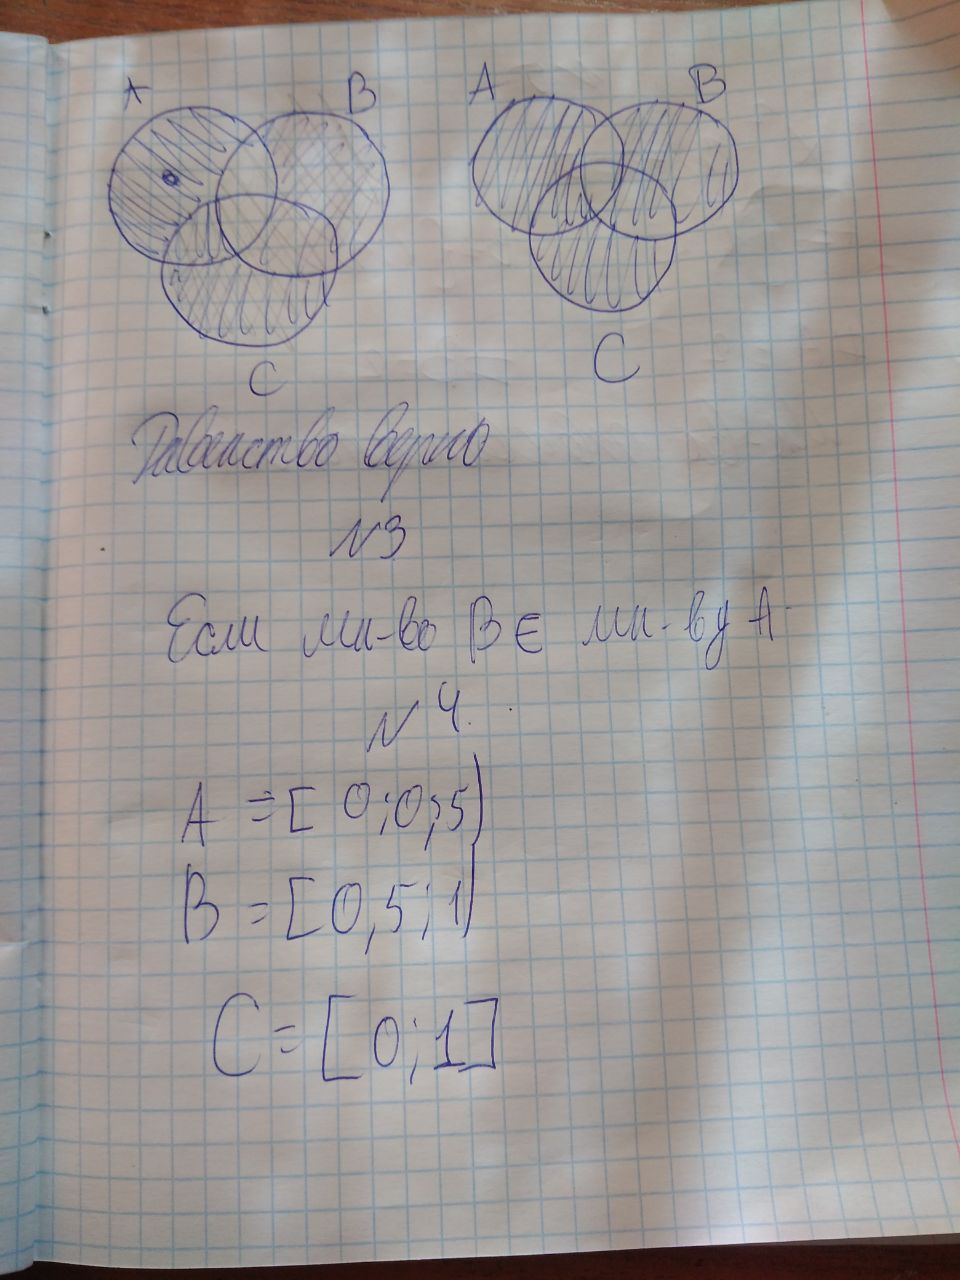 A B A B
C C
Равенство верно
№3
Если мн-во B ∈ мн-ву A
№4.
A = [0;0,5)
B = [0,5;1)
C = [0;1]